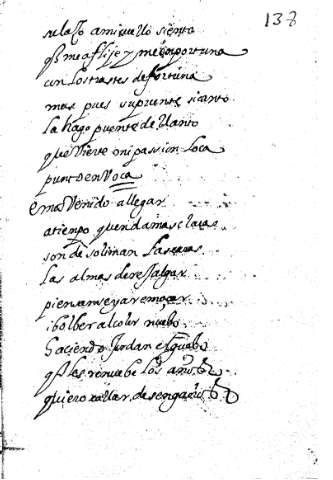 138
amiguello siento
q̃ me aflije y me ymportuna
con los trastes de fortuna
mas pues su puente siento
la hago puente de llanto
que vierte mi passion loca
punto en voca
e me venido a llegar
a tiempo quen damas claras
son de soliman las caras
las almas de rejalgar
piensanse ya remoçar
i bolber al color nuebo
haciendo Jordan
q̃ les renuebe los años
quiero callar desengaños